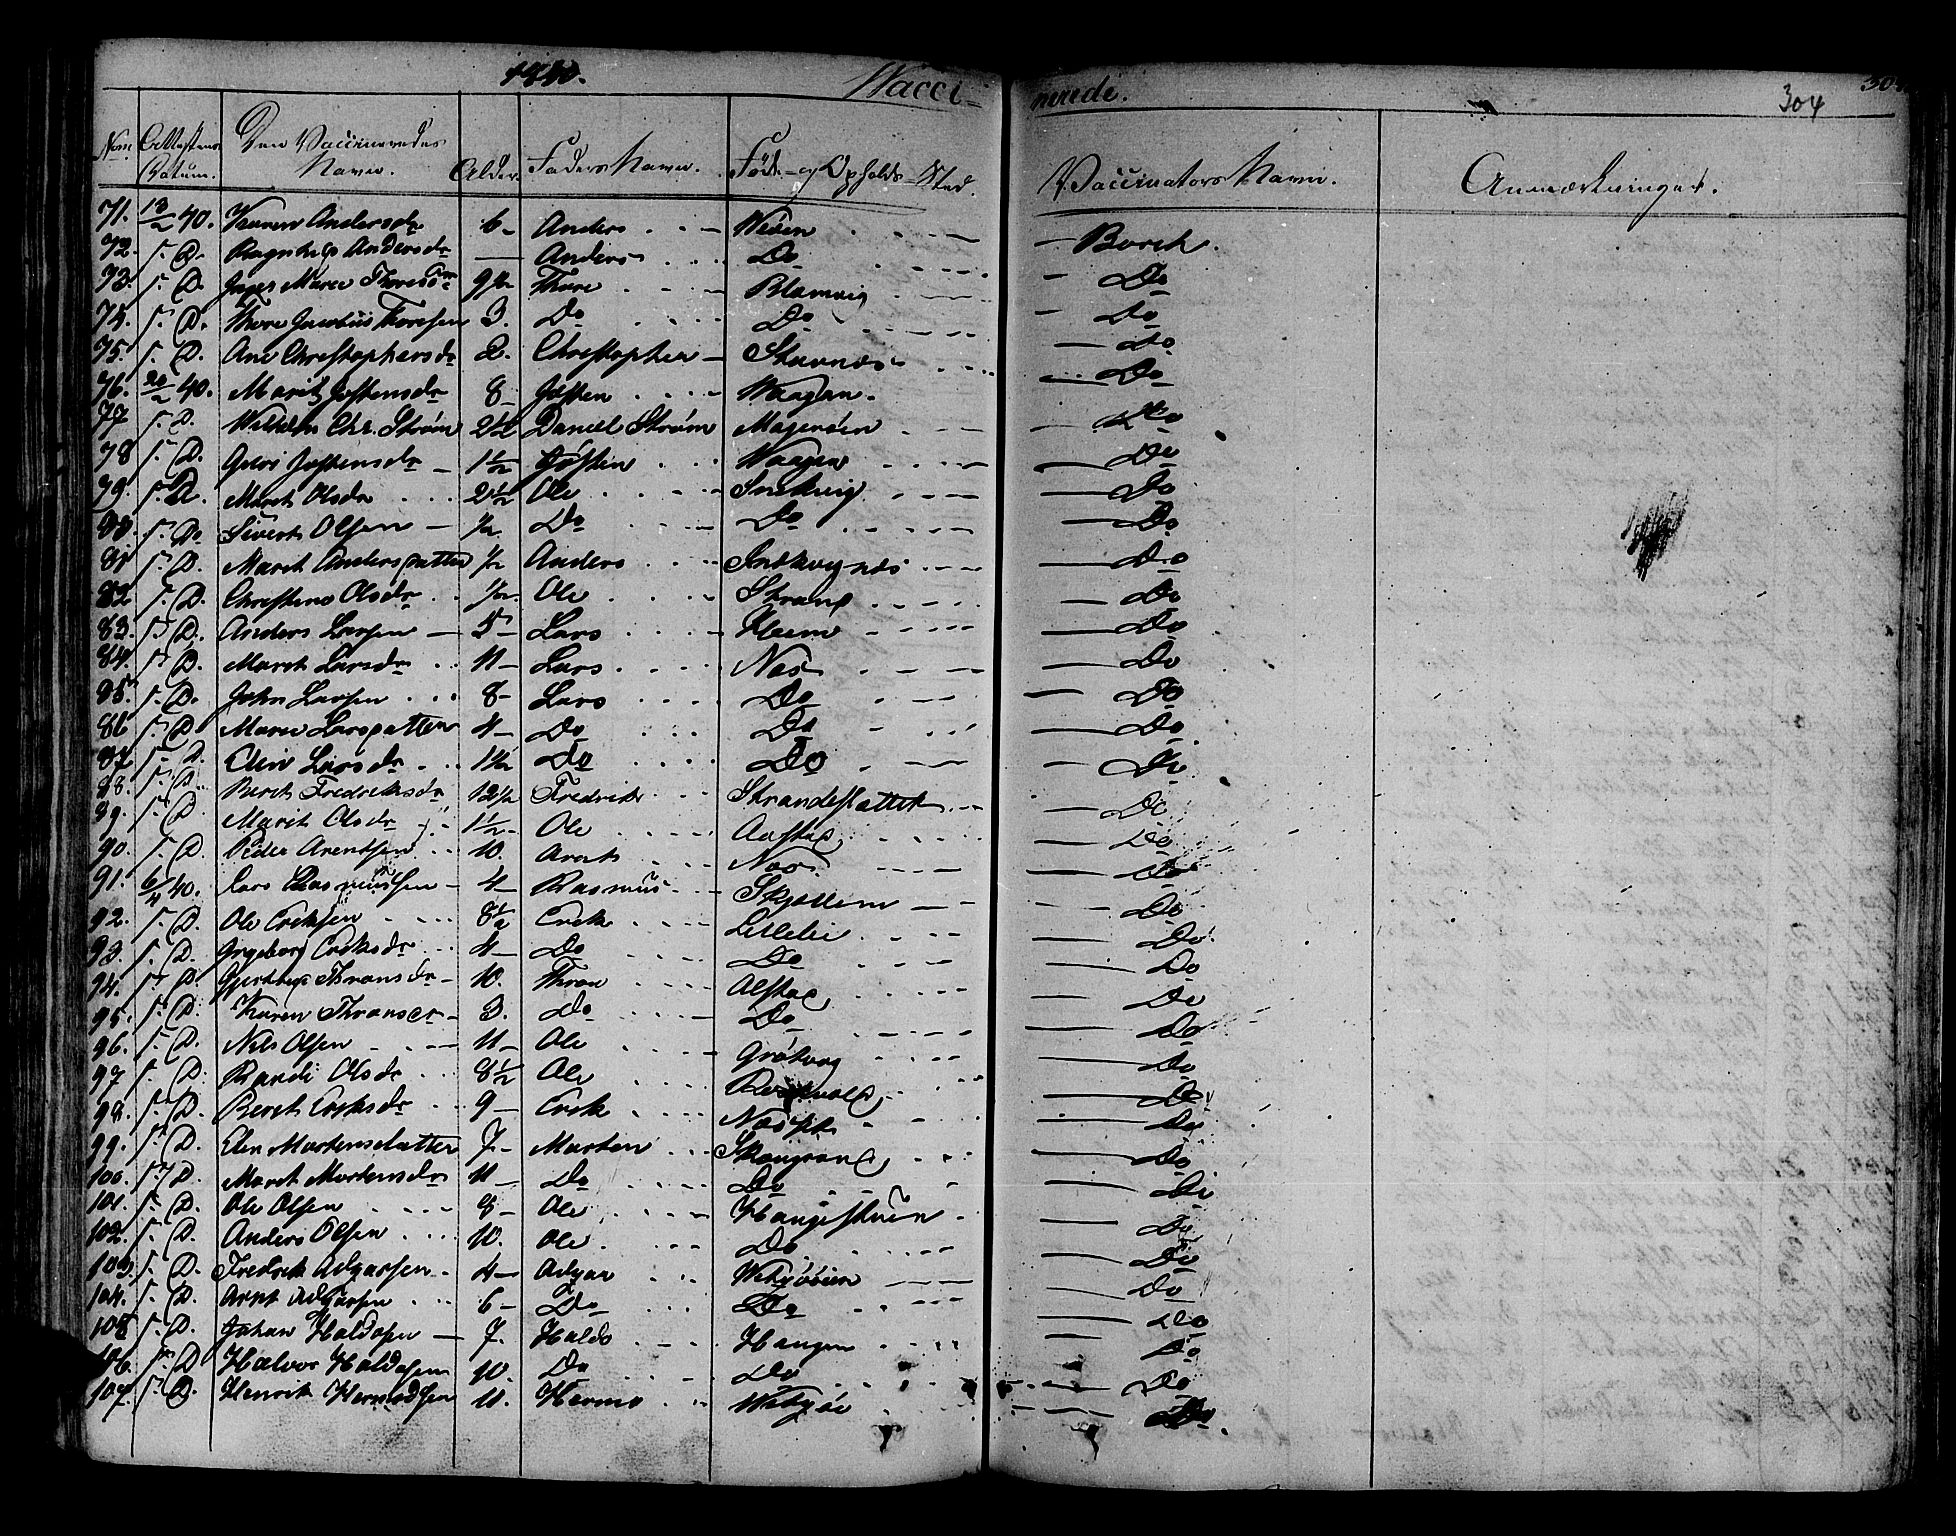 1840. Wacci- nerede. 304 304
Num. Attestens Datum. Den Vaccineredes Navn. Alder. Faders Navn. Føde- og Opholds-Sted. Vaccinators Navn. Anmærkninger.
71. 13/2 40. Karen Andersdr 6 - Anders - Borch.
72. s. D. Ragnhild Andersdr — Anders Do - Do
73. s. D. Inger Marie Thoresdr Thore - Do
74. s. D. Thore Jacobus Thoresen 3. Do Do Do
75. s. D. Ane Christophersdr 2. Christopher - Stavnes Do
76. 20/2 40. Marit Jostensdr 8 - Josten Waagan. Do
77 s. D. Wilhelm Chr. Strøm 2 1/2 Daniel Strøm Magerøen Do
78 s. D. Guri Jostensdr 1 1/2 Josten Waagen Do
79. s. D. Marit Olsdr 2 1/2 Ole Do
80. s. D. Sivert Olsen - 1/2 Do Do Do
81 s. D. Marit Andersdatter 1/2 Anders Do
82 s. D. Christine Olsdr Ole Strand Do
83. s. D. Anders Larsen - 5 - Lars Do
84. s. D. Marit Larsdr 11 - Lars Næs Do
85. s. D. John Larsen 8 - Lars Do Do
86 s. D. Maren Larsdatter 4 - Do Do Do
87 s. D. Elen Larsdr 1 1/2 Do Do Do
88. s. D. Berit Fredriksdr 12 1/2 Fredrik Do
89. s. D. Marit Olsdr 1 1/2 Ole Do
90. s. D. Peder Arentsen 10. Arent Do
91. 6/4 40. Lars Rasmussen - 4 - Rasmus Do
92. s. D. Ole Eriksen 8 1/2 Erik Lillelie Do
93. s. D. Ingeborg Eriksdr 4 - Do Do Do
94. s. D. Gjertrud Thronsdr - 10. Thron Alstad Do
95. s. D. Karen Thronsdr - 3. Do Do Do
96. s. D. Nils Olsen 11 - Ole Do
97 s. D. Randi Olsdr 8 1/2 Ole Do
98. s. D. Berit Eriksdr 9 - Erik Do
99. s. D. Elen Mortensdatter 7 - Morten Do
100. s. D. Marit Mortensdr 11 - Do Do Do
101. s. D. Ole Olsen 8 - Ole Haugestuen - Do
102. s. D. Anders Olsen 10. Ole Do Do
103. s. D. Fredrik Adgarsen 4 - Adgar Do
104. s. D. Arnt Adgarsen 6 - Do Do Do
105 s. D. Johan Haldosen - 7. Haldo Haugen Do
106. s. D. Halvor Haldosen 10. Do Do Do
107. s. D. Henrik Hermodsen 11. Hermo Do.